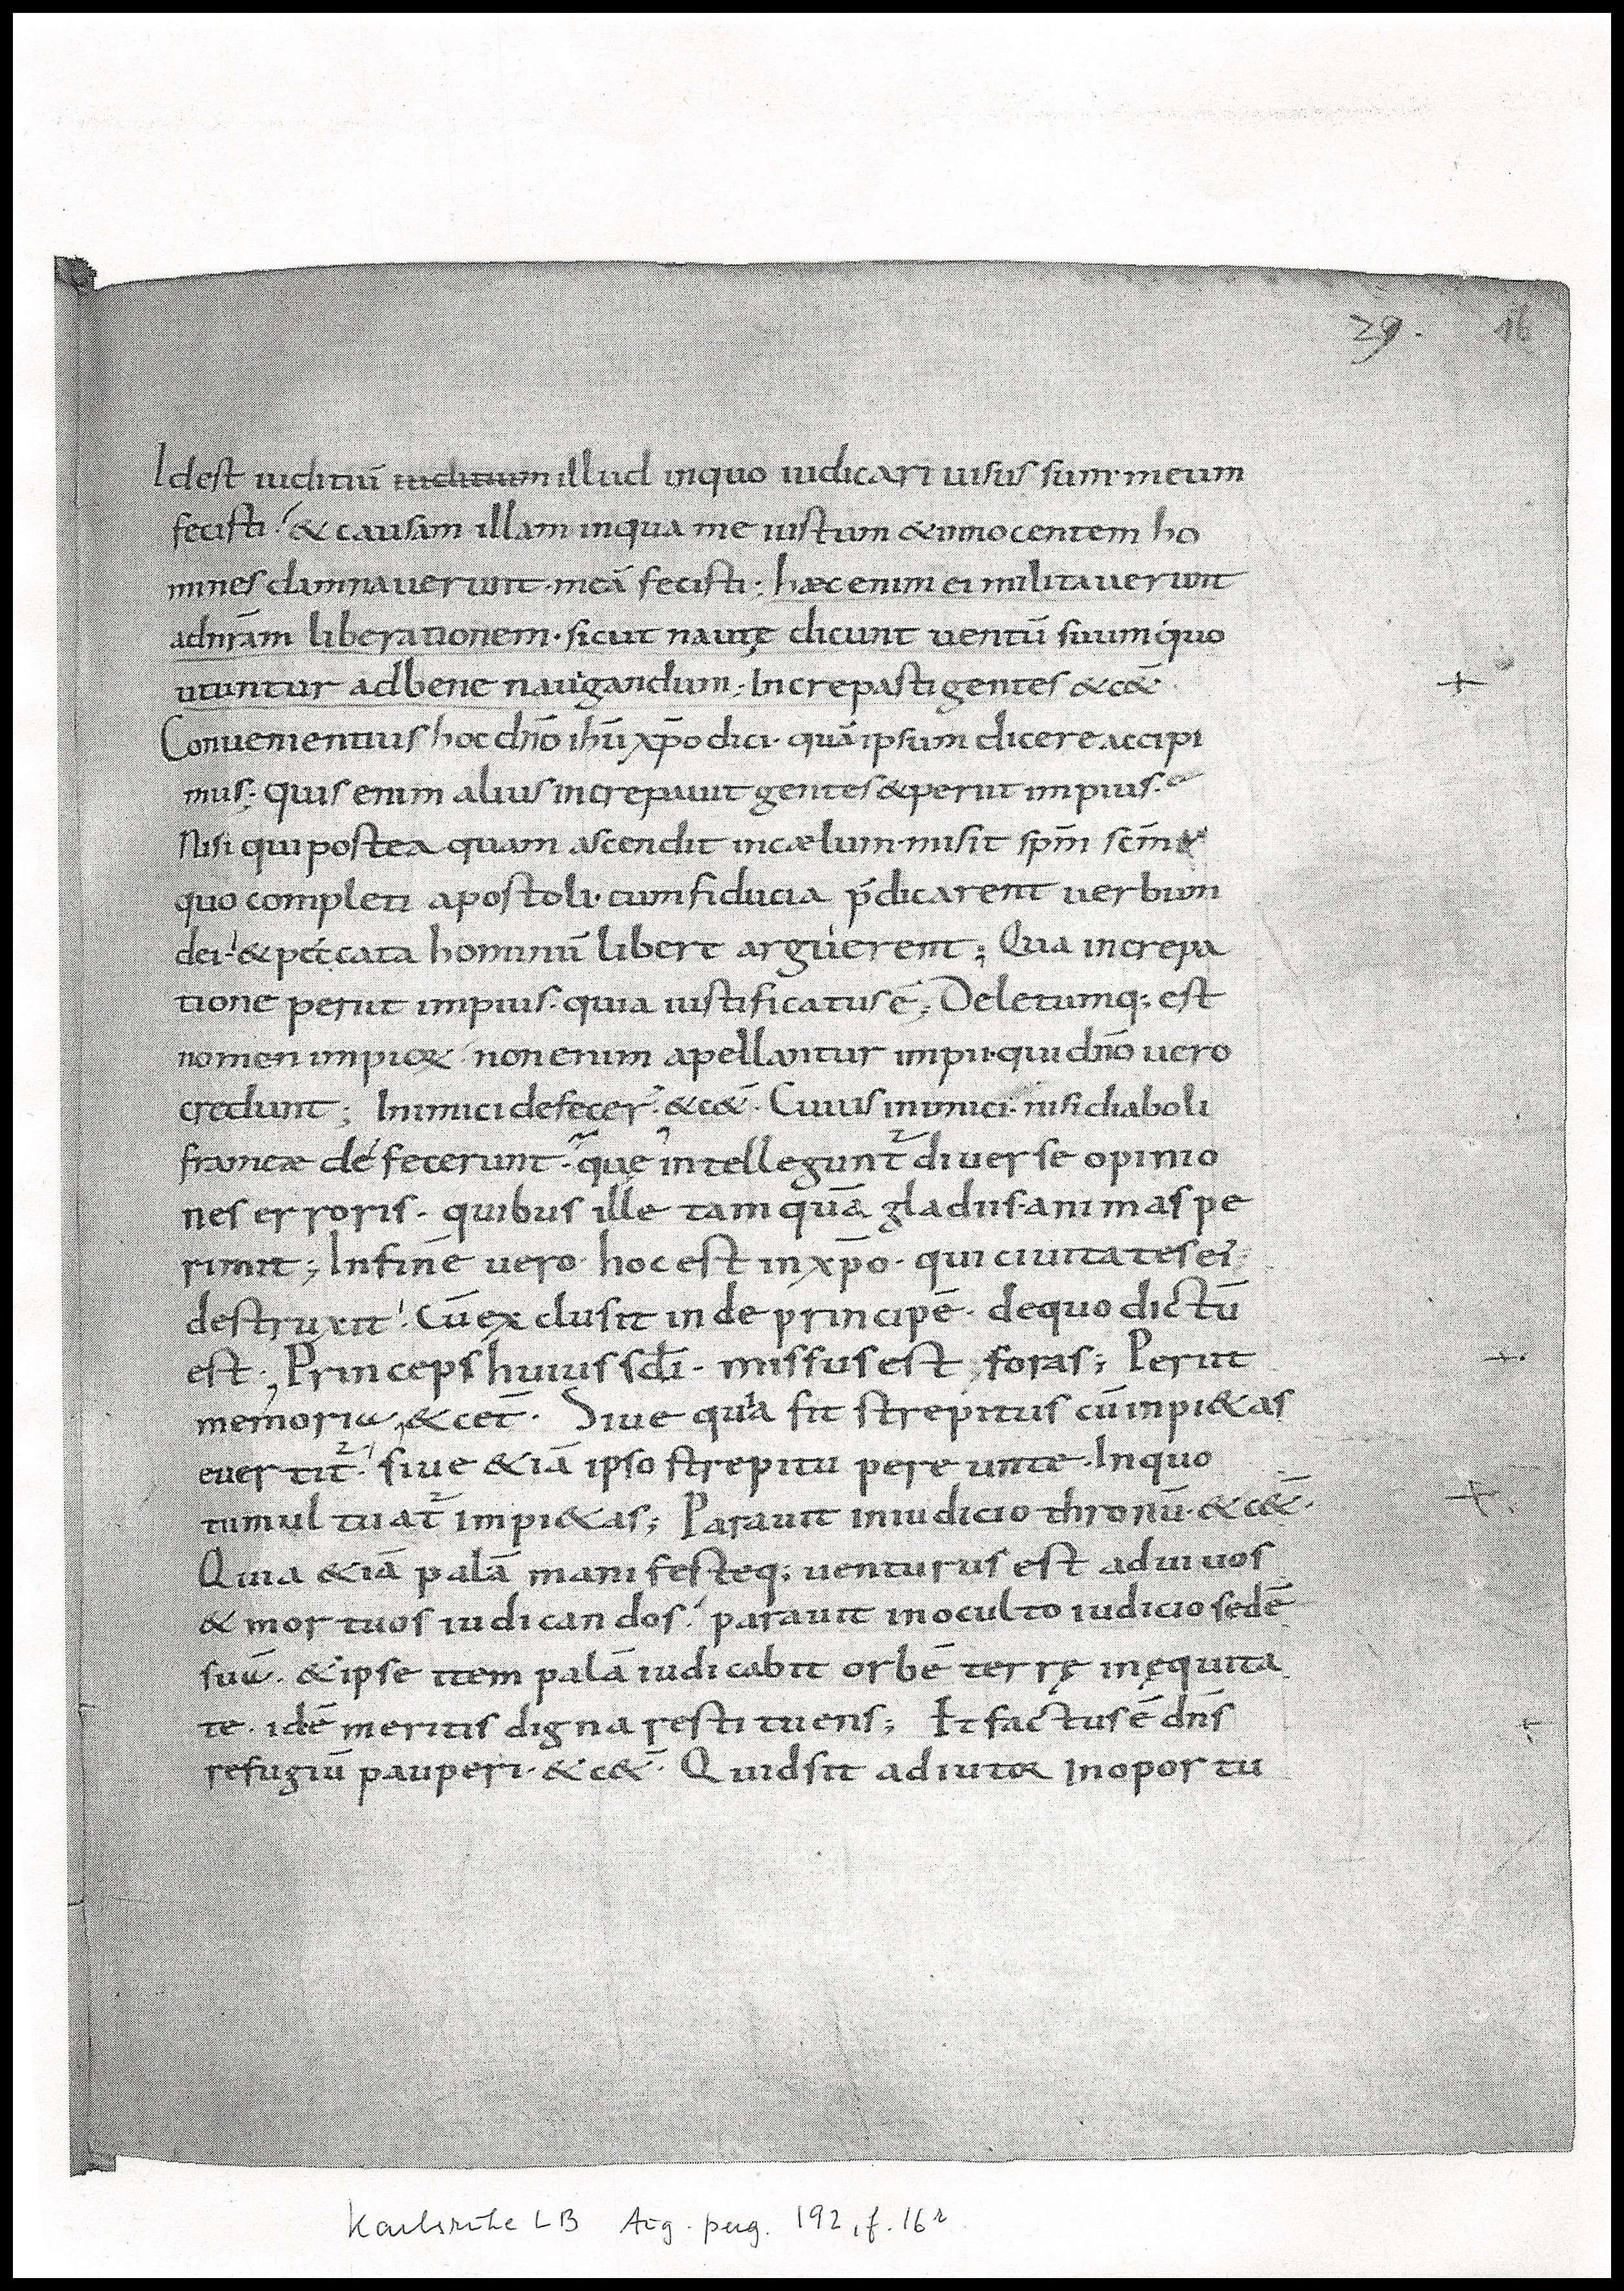 29. 16
Idest iuditiū iuditium illud inquo iudicari uisus sum· meum
fecisti·' & causam illam inqua me iustum & innocentem ho
mines damnauerunt· meā fecisti; hæc enim ei militauerunt
adnr̄am liberationem· sicut nautę dicunt uentū suum quo
utuntur adbene nauigandum; Increpasti gentes &c&̄·
Conuenientius hoc dn̄o ih̄u xp̄o dici· quā ipsum dicere accipi
mus; quis enim alius increpauit gentes & periit impius·
Nisi qui postea quam ascendit incælum· misit sp̄m sc̄m
quo completi apostoli· cum fiducia p̄dicarent uerbum
dei·' & peccata hominū libere arguerent; Qua increpa
tione periit impius· quia iustificatus ē; Deletumq; est
nomen impior·' non enim apellantur impii· qui dn̄o uero
credunt; Inimici defecer̄· &c&̄· Cuius inimici· nisi diaboli
frameæ defecerunt· quę intelleguntˀ diuerse opinio
nes erroris· quibus ille tamquā gladiis· animas pe
rimit; Infine uero hoc est in xp̄o· qui ciuitates ei
destruxit·' Cū exclusit inde principē· dequo dictū
est·, Princeps huius sc̄li· missus est foras; Periit
memoria, & cet̄· Siue quia fit strepitus cū inpi&as
euertitˀ·' siue &iā ipso strepitu pereunte· Inquo
tumultuatˀ impi&as; Parauit iniudicio thronū· &c&̄·
Quia &iā palā manifesteq; uenturus est ad uiuos
& mortuos iudicandos·' parauit inoculto iudicio sedē
suū· & ipse item palā iudicabit orbē terrę inęquita
te· idē meritis digna restituens; Et factus ē dn̄s
refugiū pauperi· &c&̄· Quid sit adiutor Inoportu
Karlsruhe LB Aug. perg. 192, f. 16r